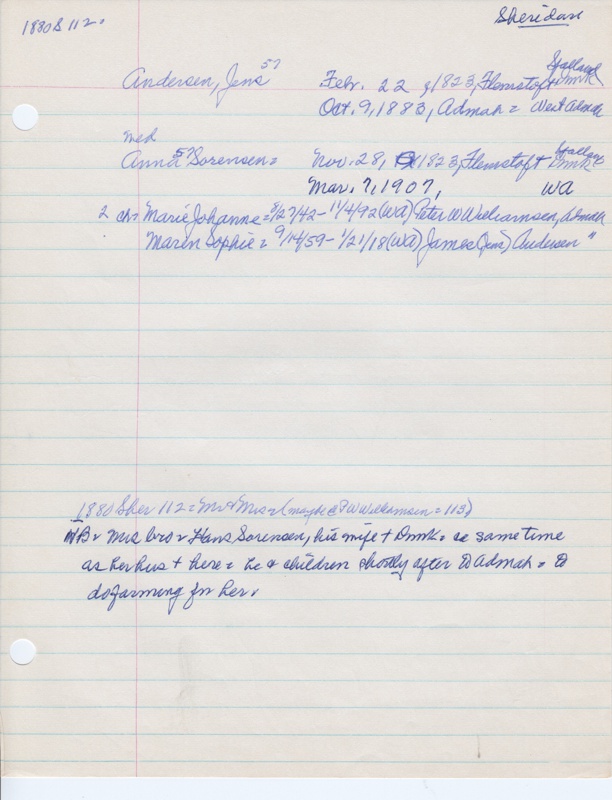 1880 S 112.
Sheridan
Andersen, Jens 57 Febr. 22, 1823, Flemstoft Sjælland Dnmk
Oct. 9, 1883, Admah = West Admah
med
Anna 57 Sorensen = Nov. 28, 1823, Flemstoft Dnmk
Mar. 7, 1907, WA
2 ch = Marie Johanne = 8/27/42 - 11/4/92 (WA) Peter W Williamsen, Admah
Maren Sophie = 9/14/59 - 1/21/18 (WA) James (Jens) Andersen "
1880 Sher 112 = Mr & Mrs = (maybe @ P W Williamsen = 113)
NB. Mrs bro = Hans Sorensen, his wife + Dnmk = same time
as her hus + here = he & children shortly after to Admah = to
do farming for her.